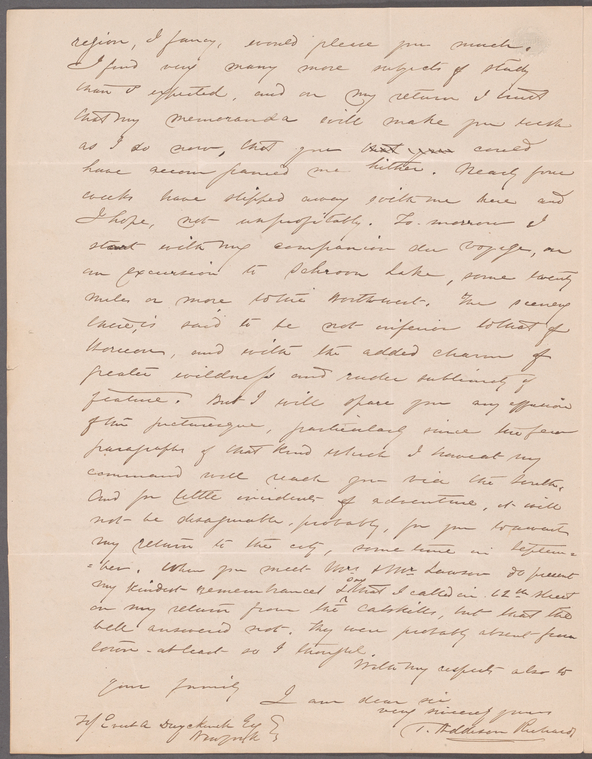 region, I fancy, would please you much.
I find very many more subjects of study
than I expected, and on my return I trust
that my memoranda will make you wish
as I do now, that you could
have accompanied me hither. Nearly four
weeks have slipped away with me here and
I hope, not unprofitably. To-morrow I
start with my companion du voyage, on
an excursion to Schroon Lake, some twenty
miles or more to the Northwest. The scenery
there, is said to be not inferior to that of
Horicon, and with the added charm of
greater wildness and ruder sublimity of
feature. But I will spare you any effusion
of the picturesque, particularly since the few
paragraphs of that kind which I have at my
command will reach you via the South.
And for little incidents of adventure, it will
not be disagreeable, probably, for you to await
my return to the city, some time in Septem=
=ber. When you meet Mrs & Mr Lawson do present
my kindest remembrances & say that I called in 12th street
on my return from the Catskills, but that the
bell answered not. They were probably absent from
town - at least so I thought.
With my respects also to
your family
I am dear sir
very sincerely yours
T. Addison Richards
To/ Evert A Duyckinck Esq
New York